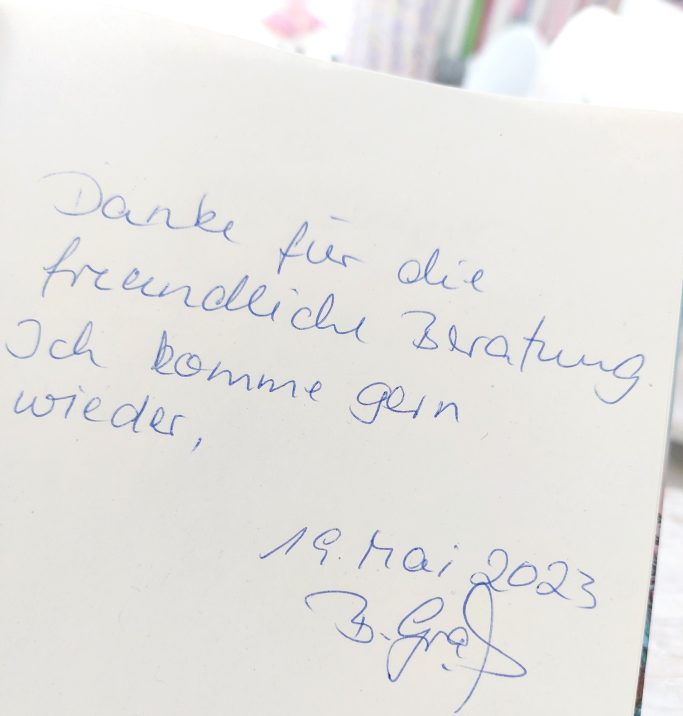 Danke für die
freundliche Beratung.
Ich komme gern
wieder,
19. Mai 2023
B. Graf